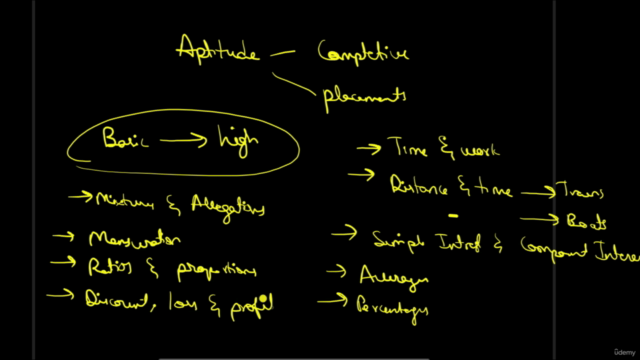 Aptitude — Competitive
placements
Basic → high
→ Mixtures & Allegations
→ Mensuration
→ Ratios & proportions
→ Discount, loss & profit
→ Time & work
→ Distance & time → Trains
→ Boats
→ Simple Intrst & Compound Intere
→ Averages
→ Percentages
udemy